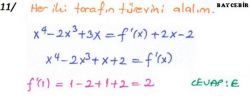 11/ Her iki tarafın türevini alalım. BAYÇEBİR
x⁴-2x³+3x = f'(x)+2x-2
x⁴-2x³+x+2 = f'(x)
f'(1) = 1-2+1+2 = 2 CEVAP: E